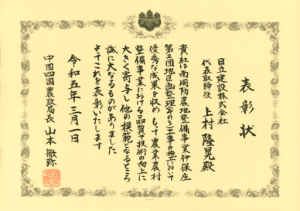 表彰状
日立建設株式会社
代表取締役 上村隆晃殿
貴社は南周防農地整備事業伊保庄
第2団地区画整理その3工事の施工において
優秀な成果を収めもって農業農村
整備事業における品質や技術の向上に
大きく寄与し他の模範となるところ
誠に大なるものがありました
よってこれを表彰いたします
令和五年三月一日
中国四国農政局長 山本徹弥